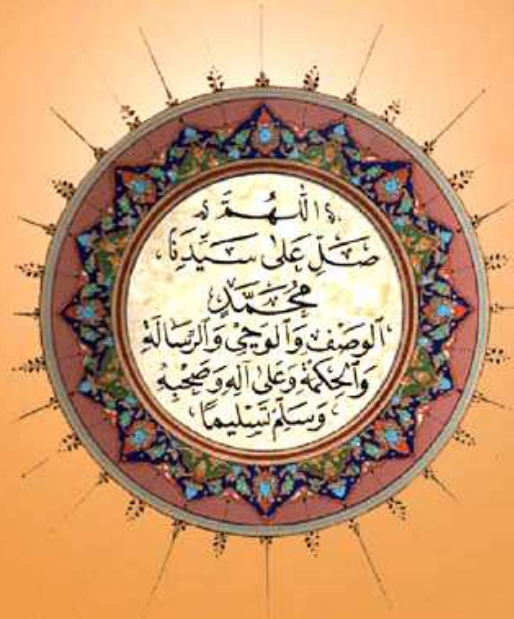 اللهم
صَلِّ عَلَى سَيِّدِنَا
مُحَمَّدٍ
الوَصْفِ وَالوَحْيِ وَالرِّسَالَةِ
وَالحِكْمَةِ وَعَلَى آلِهِ وَصَحْبِهِ
وَسَلِّمْ تَسْلِيمًا